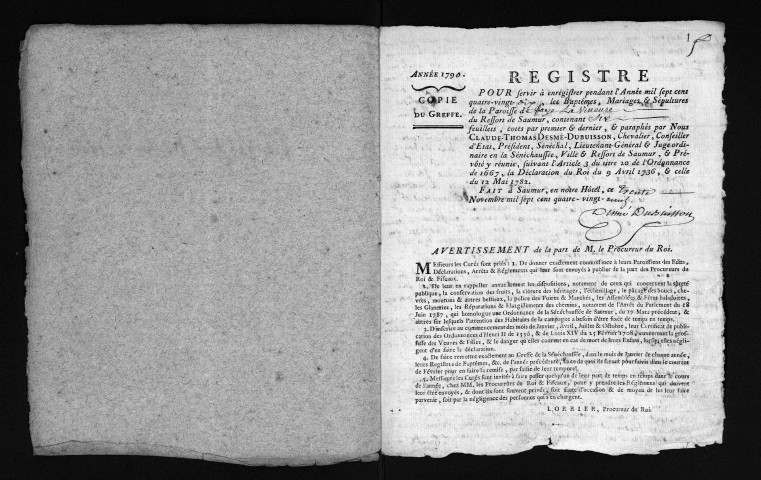 1
ANNÉE 1790.
COPIE
DU GREFFE.
REGISTRE
POUR servir à enrégistrer pendant l'Année mil sept cent
quatre-vingt-dix les Baptêmes, Mariages & Sépultures
de la Paroisse de Faye La Vineuse
du Ressort de Saumur, contenant Six
feuillets, cotés par premier & dernier, & paraphés par Nous
CLAUDE-THOMAS DESMÉ-DUBUISSON, Chevalier, Conseiller
d'Etat, Président, Sénéchal, Lieutenant-Général & Juge ordi-
naire en la Sénéchaussée, Ville & Ressort de Saumur, & Pré-
vôté y réunie, suivant l'Article 3 du titre 20 de l'Ordonnance
de 1667, la Déclaration du Roi du 9 Avril 1736, & celle
du 12 Mai 1782.
FAIT à Saumur, en notre Hôtel, ce trente
Novembre mil sept cent quatre-vingt-neuf
Desmé Dubuisson
AVERTISSEMENT de la part de M. le Procureur du Roi.
Messieurs les Curés sont priés: 1. De donner exactement connoissance à leurs Paroissiens des Edits,
Déclarations, Arrêts & Réglements qui leur sont envoyés à publier de la part des Procureurs du
Roi & Fiscaux.
2. De leur en rappeller annuellement les dispositions, notament de ceux qui concernent la sûreté
publique, la conservation des fruits, la clôture des héritages, l'échenillage, le pacage des boucs, che-
vres, moutons & autres bestiaux, la police des Foires & Marchés, les Assemblées & Fêtes baladoires,
les Glaneries, les Réparations & Elargissements des chemins, notament de l'Arrêt du Parlement du 28
Juin 1787, qui homologue une Ordonnance de la Sénéchaussée de Saumur, du 19 Mars précédent, &
autres sur lesquels l'attention des Habitants de la campagne a besoin d'être fixée de temps en temps.
3. D'inscrire au commencement des mois de Janvier, Avril, Juillet & Octobre, leur Certificat de publi-
cation des Ordonnances d'Henri II de 1556, & de Louis XIV du 25 Février 1708, concernant la gros-
sesse des Veuves & Filles, & le danger qu'elles courent en cas de mort de leurs Enfans, lorsqu'elles négli-
gent d'en faire la déclaration.
4. De faire remettre exactement au Greffe de la Sénéchaussée, dans le mois de Janvier de chaque année,
leurs Registres de Baptêmes, &c. de l'année précédente, faute de quoi ils seront poursuivis dans le courant
de Février pour en faire la remise, par saisie de leur temporel.
5. Messieurs les Curés sont invités à faire passer quelqu'un de leur part de temps en temps dans le cours
de l'année, chez MM. les Procureurs du Roi & Fiscaux, pour y prendre les Réglements qui doivent
leur être envoyés, & dont ils sont souvent privés, soit faute d'occasion & de moyen de les leur faire
parvenir, soit par la négligence des personnes qui s'en chargent.
LORRIER, Procureur du Roi.